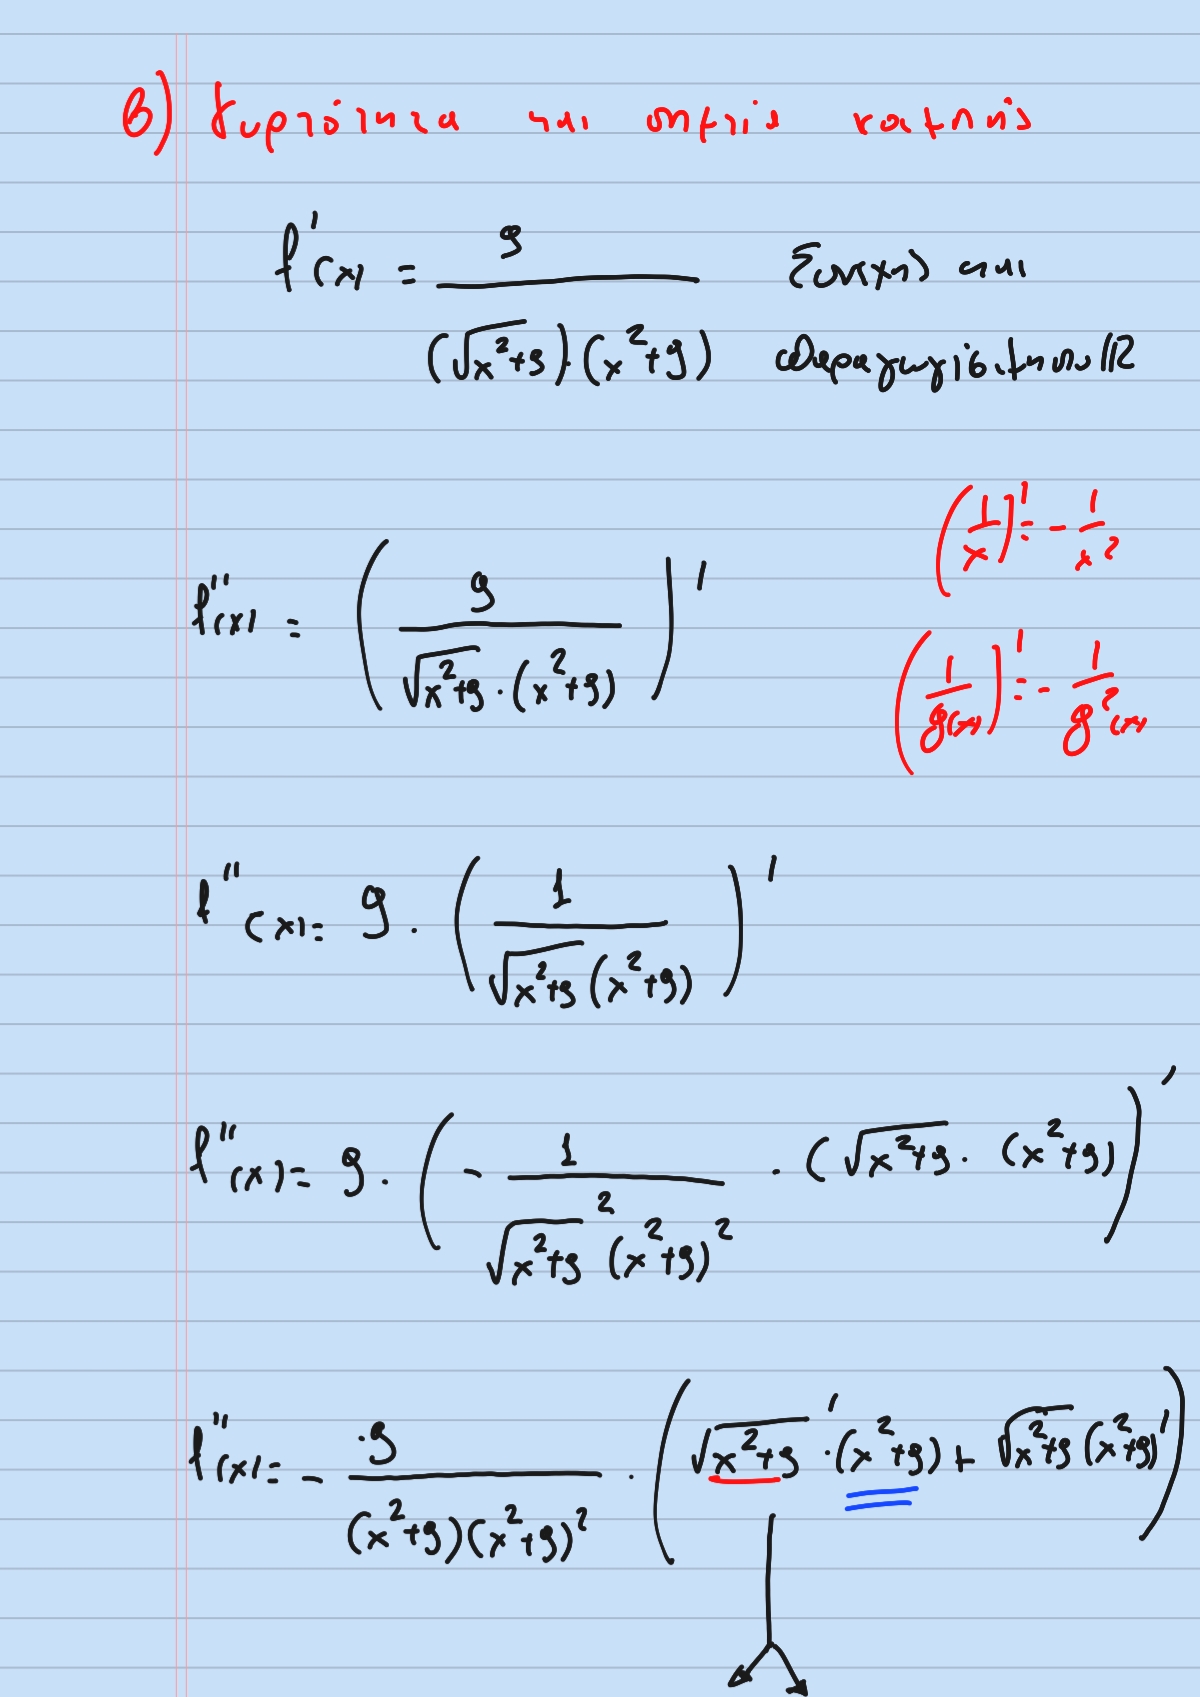 β) Κυρτότητα και σημεία καμπής
f'(x) = 9 / (√(x²+9))·(x²+9) Συνεχής και
παραγωγίσιμη στο ℝ
(1/x)' = - 1/x²
f''(x) = (9 / √(x²+9) · (x²+9))'
(1/g(x))' = - 1/g²(x)
f''(x) = 9 · (1 / √(x²+9) (x²+9))'
f''(x) = 9 · (- 1 / √(x²+9)² (x²+9)² · (√(x²+9) · (x²+9))'
f''(x) = - 9 / (x²+9)(x²+9)² · (√(x²+9)' · (x²+9) + √(x²+9) (x²+9)')